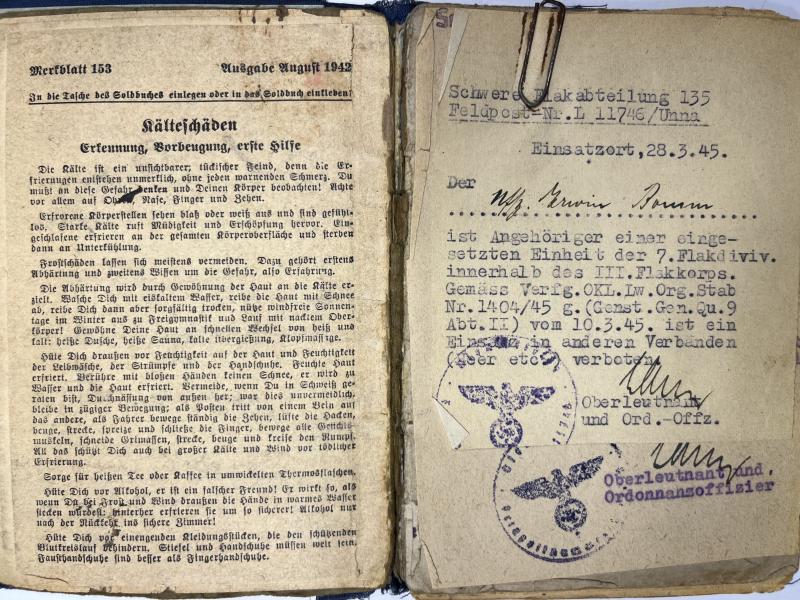 Merkblatt 153 Ausgabe August 1942
In die Tasche des Soldbuches einlegen oder in das Soldbuch einkleben!
Kälteschäden
Erkennung, Vorbeugung, erste Hilfe
Die Kälte ist ein unsichtbarer, tückischer Feind, denn die Er-
frierungen entstehen unmerklich, ohne jeden warnenden Schmerz. Du
mußt an diese Gefahr denken und Deinen Körper beobachten! Achte
vor allem auf Ohren, Nase, Finger und Zehen.
Erfrorene Körperstellen sehen blaß oder weiß aus und sind gefühl-
los. Starke Kälte ruft Müdigkeit und Erschöpfung hervor. Ein-
geschlafene erfrieren an der gesamten Körperoberfläche und sterben
dann an Unterkühlung.
Frostschäden lassen sich meistens vermeiden. Dazu gehört erstens
Abhärtung und zweitens Wissen um die Gefahr, also Erfahrung.
Die Abhärtung wird durch Gewöhnung der Haut an die Kälte er-
zielt. Wasche Dich mit eiskaltem Wasser, reibe die Haut mit Schnee
ab, reibe Dich dann aber sorgfältig trocken, nütze windfreie Sonnen-
tage im Winter aus zu Freigymnastik und Lauf mit nacktem Ober-
körper! Gewöhne Deine Haut an schnellen Wechsel von heiß und
kalt: heiße Dusche, heiße Sauna, kalte Übergießung, Klopfmassage.
Hüte Dich draußen vor Feuchtigkeit auf der Haut und Feuchtigkeit
der Leibwäsche, der Strümpfe und der Handschuhe. Feuchte Haut
erfriert. Berühre mit bloßen Händen keinen Schnee, er wird zu
Wasser und die Haut erfriert. Vermeide, wenn Du in Schweiß ge-
raten bist, Durchnässung von außen her; war dies unvermeidlich,
bleibe in zügiger Bewegung; als Posten tritt von einem Bein auf
das andere, als Fahrer bewege ständig die Zehen, lüfte die Hacken,
beuge, strecke, spreize und schließe die Finger, bewege alle Gesichts-
muskeln, schneide Grimassen, strecke, beuge und kreise den Rumpf.
All das schützt Dich auch bei großer Kälte und Wind vor tödlicher
Erfrierung.
Sorge für heißen Tee oder Kaffee in umwickelten Thermosflaschen.
Hüte Dich vor Alkohol, er ist ein falscher Freund! Er wirkt so, als
wenn Du bei Frost und Wind draußen die Hände in warmes Wasser
stecken würdest: hinterher erfrieren sie um so sicherer! Alkohol nur
nach der Rückkehr ins sichere Zimmer!
Hüte Dich vor einengenden Kleidungsstücken, die den schützenden
Blutkreislauf behindern. Stiefel und Handschuhe müssen weit sein.
Fausthandschuhe sind besser als Fingerhandschuhe.
Schwere Flakabteilung 135
Feldpost-Nr.L 11746/Unna
Einsatzort, 28.3.45.
Der
Uffz. Erwin
ist Angehöriger einer einge-
setzten Einheit der 7.Flakdiviv.
innerhalb des III.Flakkorps.
Gemäss Verfg.OKL.Lw.Org.Stab
Nr.1404/45 g.(Genst.Gen.Qu.9
Abt.II) vom 10.3.45. ist ein
Einsatz in anderen Verbänden
(Heer etc. verboten
Oberleutnant
und Ord.-Offz.
Oberleutnant und
Ordonnanzoffizier